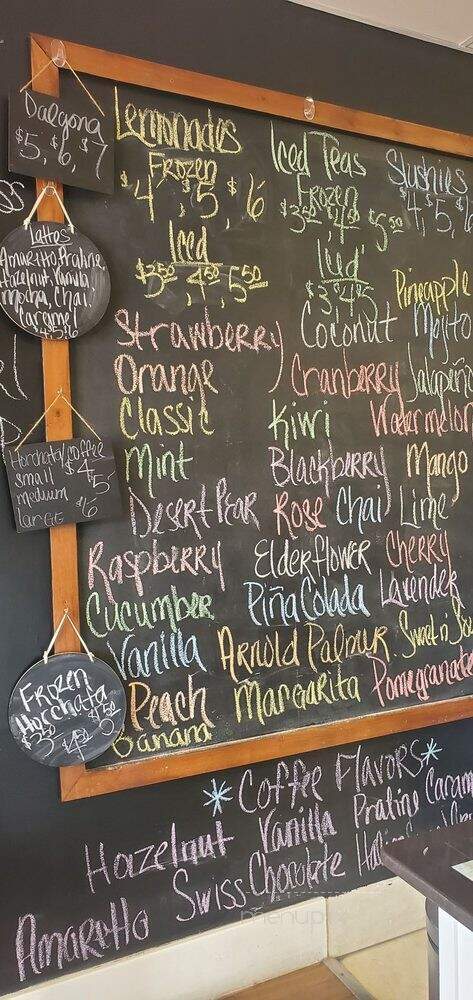 Dalgona
$5, $6, $7
Lattes
Amaretto, Praline,
Hazelnut, Vanilla,
Mocha, Chai,
Caramel
Horchata/Coffee
small $4
medium $5
large $6
Frozen
Horchata
$3.50 $4.50 $5.50
Lemonades
Frozen
$4, $5, $6
Iced
$3.50, 4.50, 5.50
Iced Teas
Frozen
$3.50 $4.50 $5.50
Iced
$3 4 5
Slushies
$4, 5, $6
Pineapple
Strawberry Coconut Mojito
Orange Cranberry Jalapeño
Classic Kiwi Watermelon
Mint Blackberry Mango
Desert Pear Rose Chai Lime
Raspberry Elderflower Cherry
Cucumber Piña Colada Lavender
Vanilla Arnold Palmer Sweet n
Peach Margarita Pomegranate
Banana
*Coffee Flavors*
Hazelnut Vanilla Praline Caram
Amaretto Swiss Chocolate
menupix